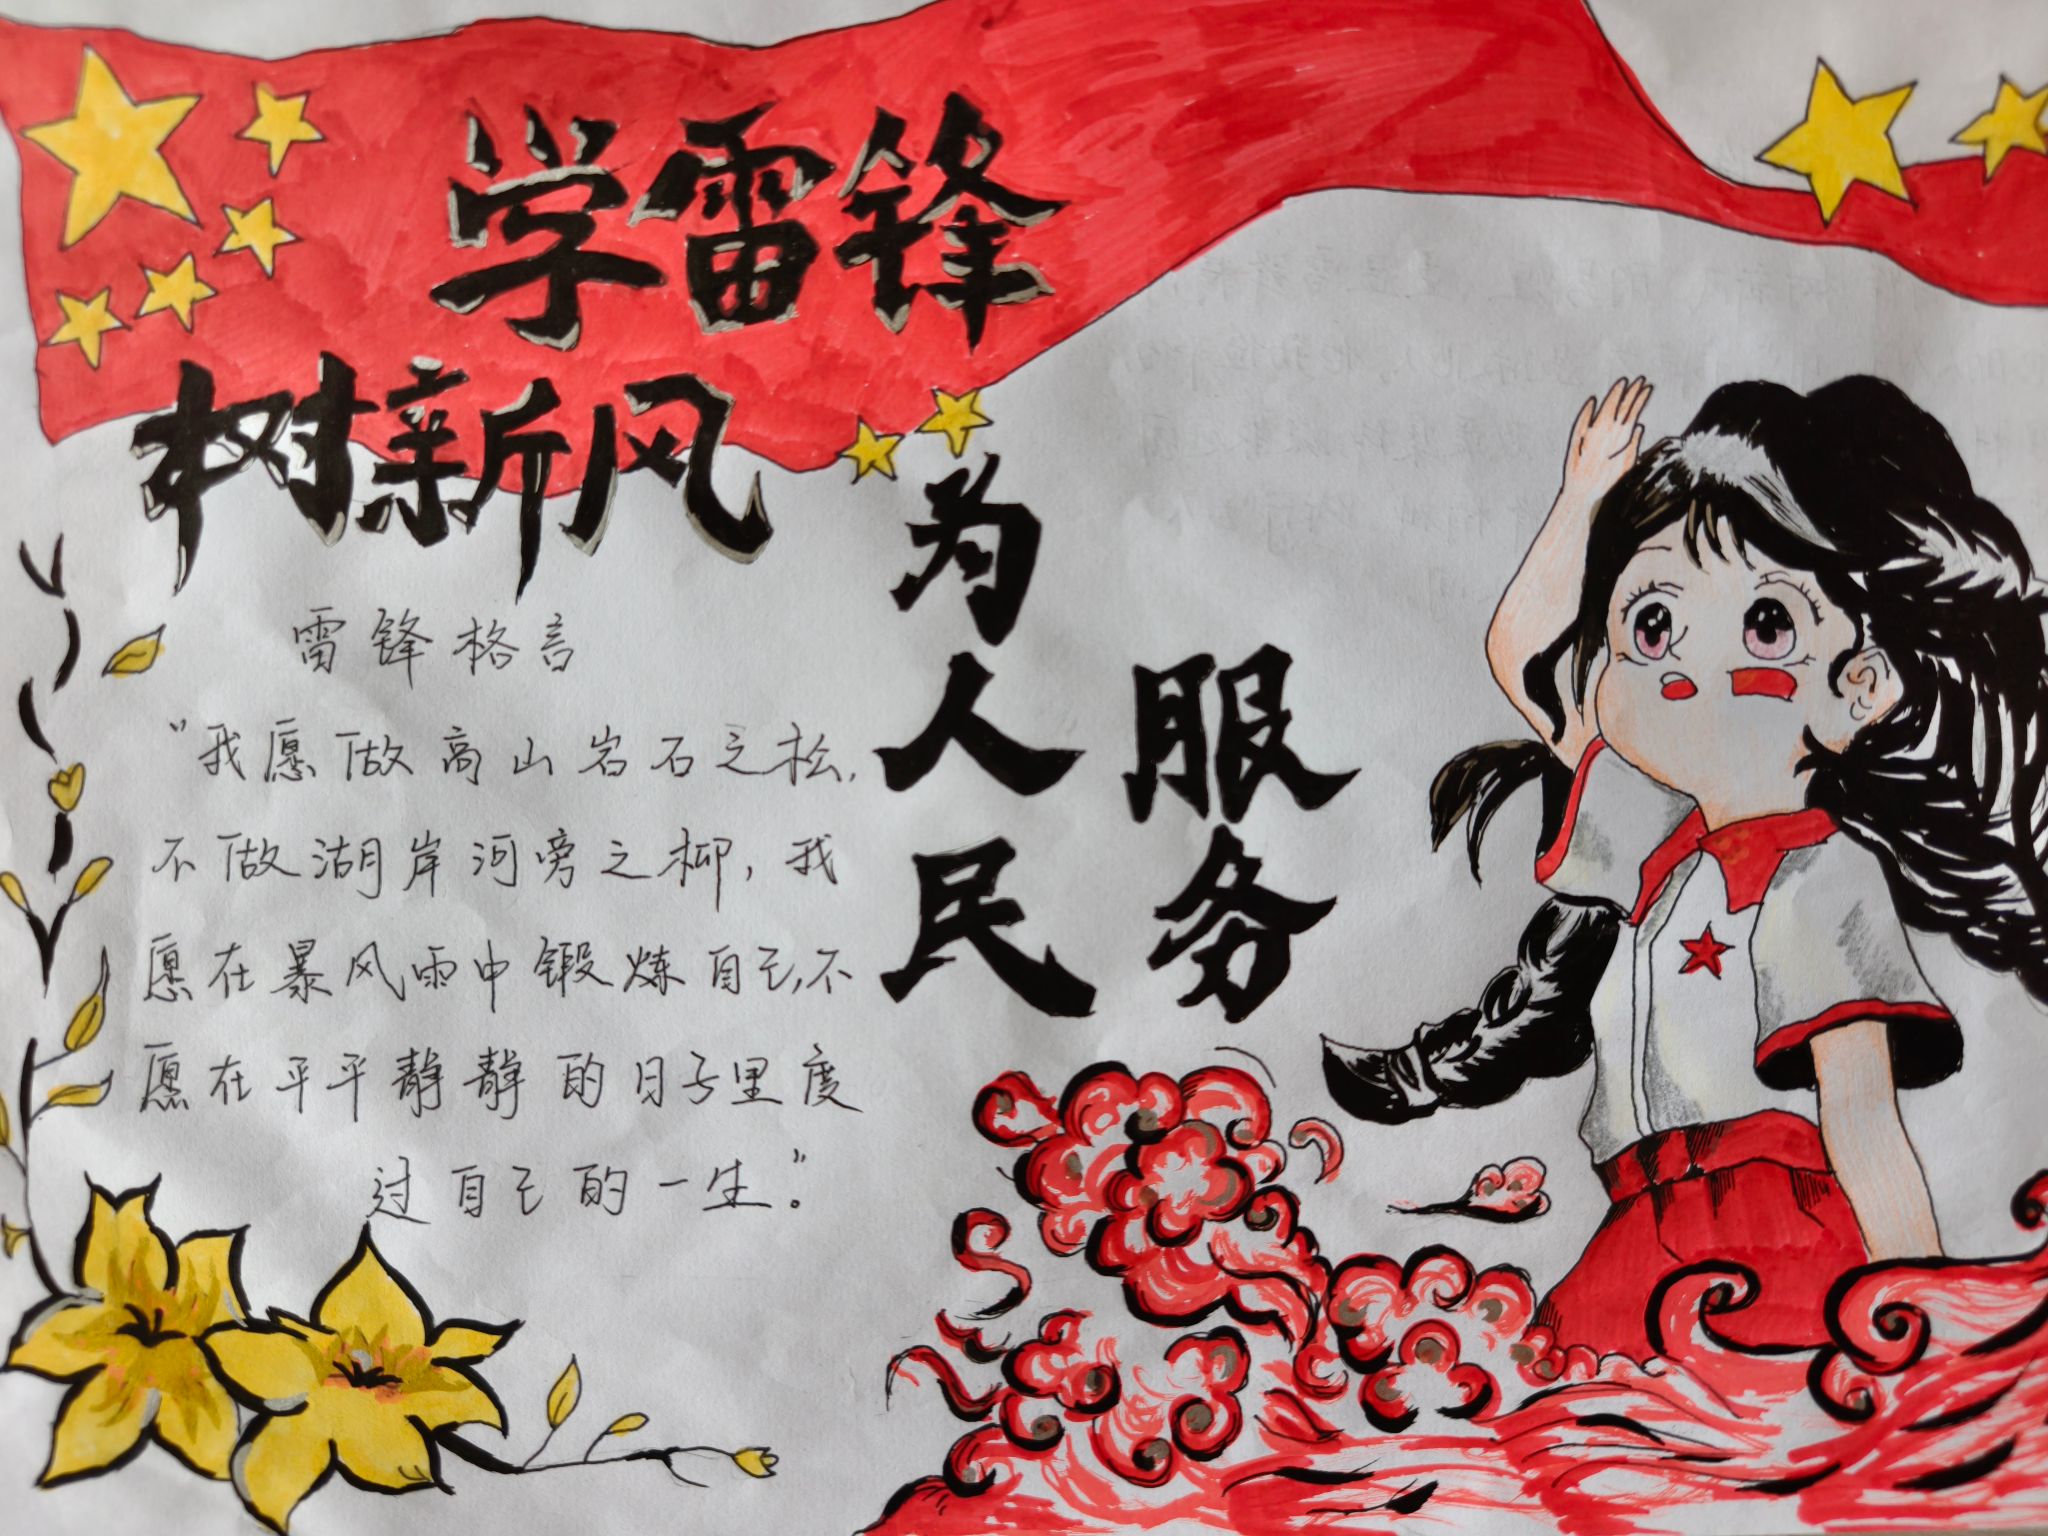 学雷锋
树新风
雷锋格言
“我愿做高山岩石之松，
不做湖岸河旁之柳，我
愿在暴风雨中锻炼自己，不
愿在平平静静的日子里度
过自己的一生。”
为人民
服务